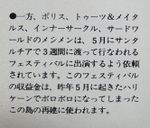 ●一方、ポリス、トゥーツ&メイタ
ルス、インナーサークル、サードワ
ールドのメンメンは、5月にサンタ
ルチアで3週間に渡って行なわれる
フェスティバルに出演するよう依頼
されています。このフェスティバル
の収益金は、昨年5月に起きたハリ
ケーンでボロボロになってしまった
この島の再建に使われます。